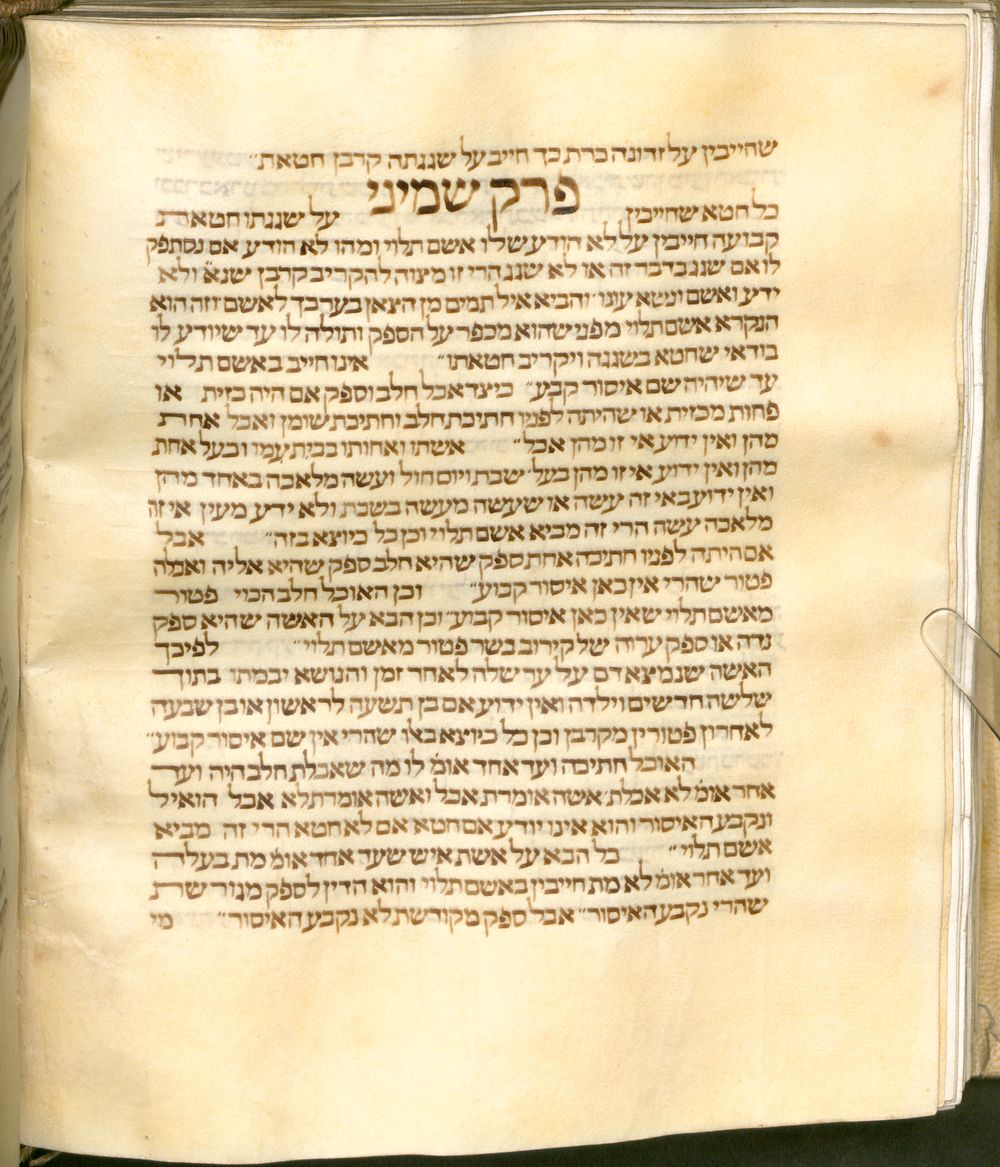 שחייבין על זדונה כרת כך חייב על שגגתה קרבן חטאת״
פרק שמיני
כל חטא שחייבין על שגגתו חטאת
קבועה חייבין על לא הודע שלו אשם תלוי ומהו לא הודע אם נסתפק
לו אם שגג בדבר זה או לא שגג הרי זו מצוה להקריב קרבן שנא׳ ולא
ידע ואשם ונשא עונו והביא איל תמים מן הצאן בערכך לאשם וזה הוא
הנקרא אשם תלוי מפני שהוא מכפר על הספק ותולה לו עד שיודע לו
בודאי שחטא בשגגה ויקריב חטאתו״ אינו חייב באשם תלוי
עד שיהיה שם איסור קבע״ כיצד אכל חלב וספק אם היה כזית או
פחות מכזית או שהיתה לפניו חתיכת חלב וחתיכת שומן ואכל אחת
מהן ואין ידוע אי זו מהן אכל״ אשתו ואחותו בבית עמו ובעל אחת
מהן ואין ידוע אי זו מהן בעל שבת ויום חול ועשה מלאכה באחד מהן
ואין ידוע באי זה עשה או שעשה מעשה בשבת ולא ידע מעין אי זה
מלאכה עשה הרי זה מביא אשם תלוי וכן כל כיוצא בזה״ אבל
אם היתה לפניו חתיכה אחת ספק שהיא חלב ספק שהיא אליה ואכלה
פטור שהרי אין כאן איסור קבוע״ וכן האוכל חלב הכוי פטור
מאשם תלוי שאין כאן איסור קבוע״ וכן הבא על האשה שהיא ספק
נדה או ספק ערוה של קירוב בשר פטור מאשם תלוי״ לפיכך
האשה שנמצא דם על עד שלה לאחר זמן והנושא יבמתו בתוך
שלשה חדשים וילדה ואין ידוע אם בן תשעה לראשון או בן שבעה
לאחרון פטורין מקרבן וכן כל כיוצא באלו שהרי אין שם איסור קבוע״
האוכל חתיכה ועד אחד אומ׳ לו מה שאכלת חלב היה ועד
אחד אומ׳ לא אכלת אשה אומרת אכל ואשה אומרת לא אכל הואיל
ונקבע האיסור והוא אינו יודע אם חטא אם לא חטא הרי זה מביא
אשם תלוי״ כל הבא על אשת איש שעד אחד אומ׳ מת בעלה
ועד אחד אומ׳ לא מת חייבין באשם תלוי והוא הדין לספק מגורשת
שהרי נקבע האיסור״ אבל ספק מקודשת לא נקבע האיסור״ מי